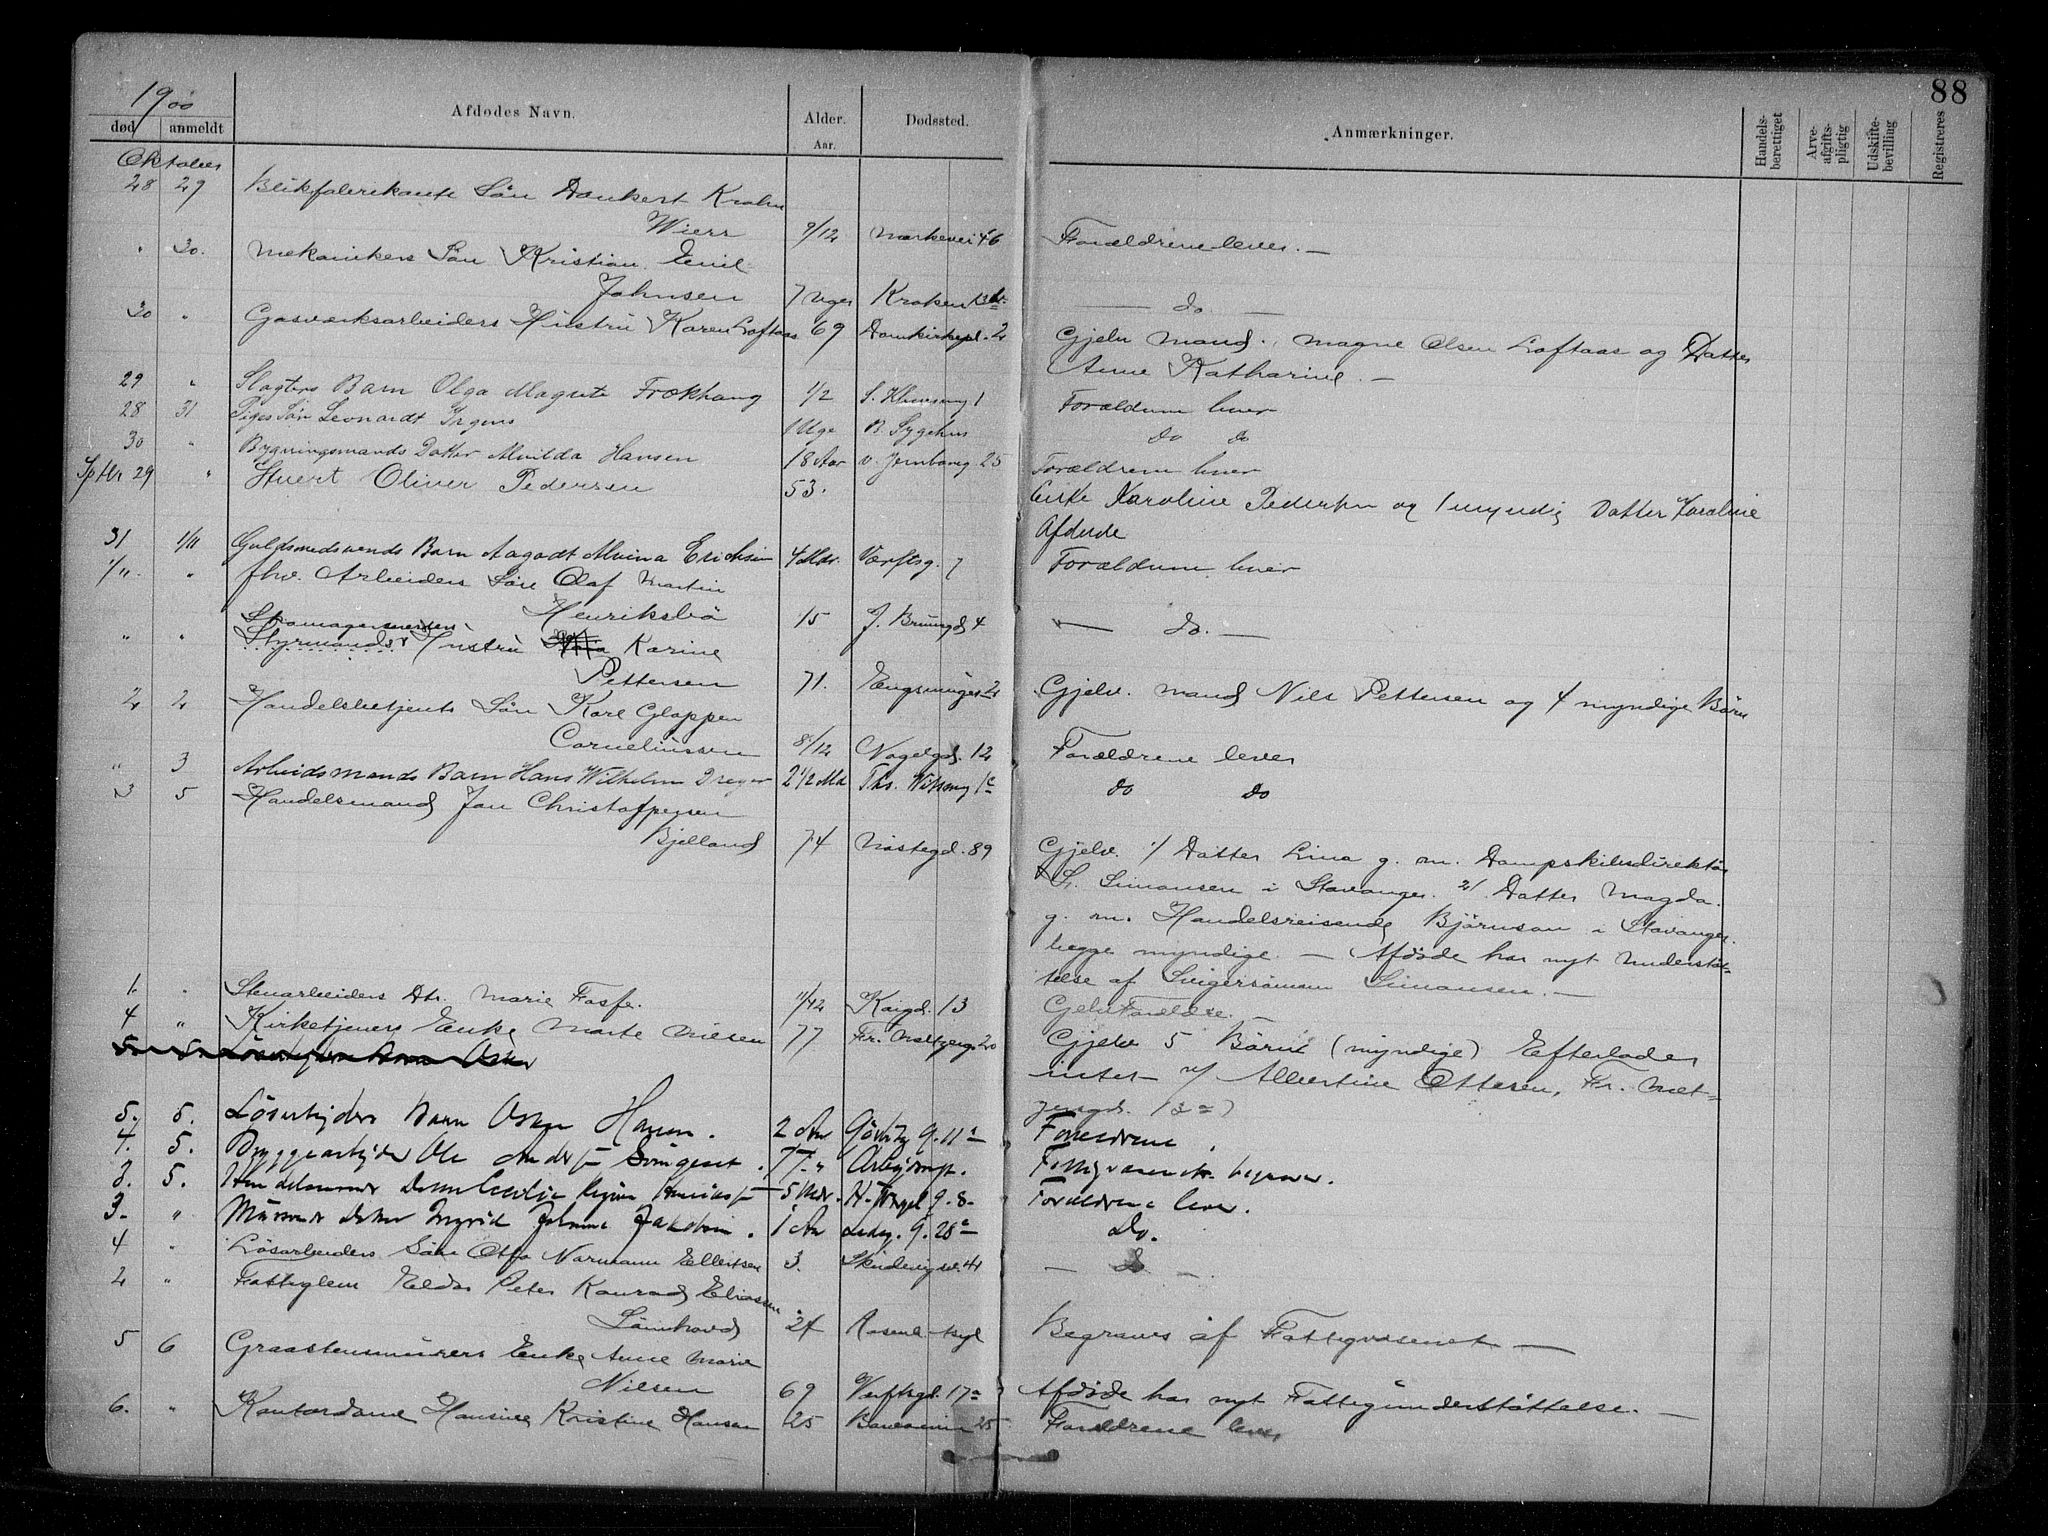 88
1900
død anmeldt Afdødes Navn. Alder. Aar. Dødssted. Anmærkninger. Handels-berettiget Arve-afgifts-pligtig Udskifte-bevilling Registreres
Oktober
28 29 Blikfabrikants Søn Dankert Krohn
Wiers 9/12 Markevei 46 Forældrene lever. —
" 30. Mekanikers Søn Kristian Emil
Johnsen 7 Uger Kroken — do. —
30 " Gasværksarbeiders Hustru Karen Loftaas 69 Domkirkepl. 2 Gjelv Mand. Magne Olsen Loftaas og Datter
Anne Katharine. —
29 " Slagters Barn Olga Magrete Frækhaug 1/2 1 Forældrene lever
28 31 Piges Søn Leonardt Irgens 1 Uge B. Sygehus do do
30 " Bygningsmands Datter Alvilda Hansen 18 Aar v. Jernbaneg 25 Forældrene lever
Sptbr 29 " Stuert Oliver Pedersen 53. Enke Karoline Pedersen og 1 myndig Datter Karoline
Afdøde
31 1/11 Guldsmedsvends Barn Aagodt Alvina Erichsen 4 Mdr. Værftsg. 7 Forældrene lever
1/11. " fhv. Arbeiders Søn Olaf Martin
Henriksbø 15 J. Bruunsgd 4 — do. —
" " Skomagersvends
Styrmands Hustru Karine
Pettersen 71. Engsmuget 2 Gjelv. Mand Nils Pettersen og 4 myndige Børn
2 2 Handelsbetjents Søn Karl Gloppen
Corneliussen 8/12 Nagelgd. 12 Forældrene lever
" 3 Arbeidsmands Barn Hans Wilhelm Dreyer 2 1/2 Md do do
3 5 Handelsmand Jan Christoffersen
Bjelland 74 Nøstegd. 89 Gjelv. 1/ Datter Lina g. m. Dampskibsdirektør
Simonsen i Stavanger. 2/ Datter Magda.
g. m. Handelsreisende Bjørnson i Stavanger.
begge myndige. — Afdøde har nyt Understøt-
telse af Svigersønnen Simonsen. —
1. " Stenarbeiders Dtr. Marie Fosse. 11/12 Kaigd. 13 Gjelv Forældre. —
4 " Kirketjeners Enke Marte Nielsen 77 Gjelv 5 Børn (myndige) Efterlader
intet v/ Albertine Ottesen, Fr. Melt-
zersgd.
5. 5. Løsarbejders Barn Oskar Hansen. 2 Aar 11a Forældrene
4. 5. Bryggearbejder Ole 77 " Fattigvæsenet begraver.
3. 5. 5 Mdr. 8. Forældrene lever.
3. " Murmands Datter Ingrid Johanne Jakobsen. 1 Aar Do.
4 " Løsarbeiders Søn Otto Normann Ellertsen 3. — do —
2 " Fattiglem Peter Konrad Eliassen
24 Begraves af Fattigvæsenet —
5 6 Graastensmurers Enke Anne Marie
Nilsen 69 Verftsgd. 17a Afdøde har nyt Fattigunderstøttelse. —
6. " Kontordame Hansine Kristine Hansen 25 25 Forældrene lever